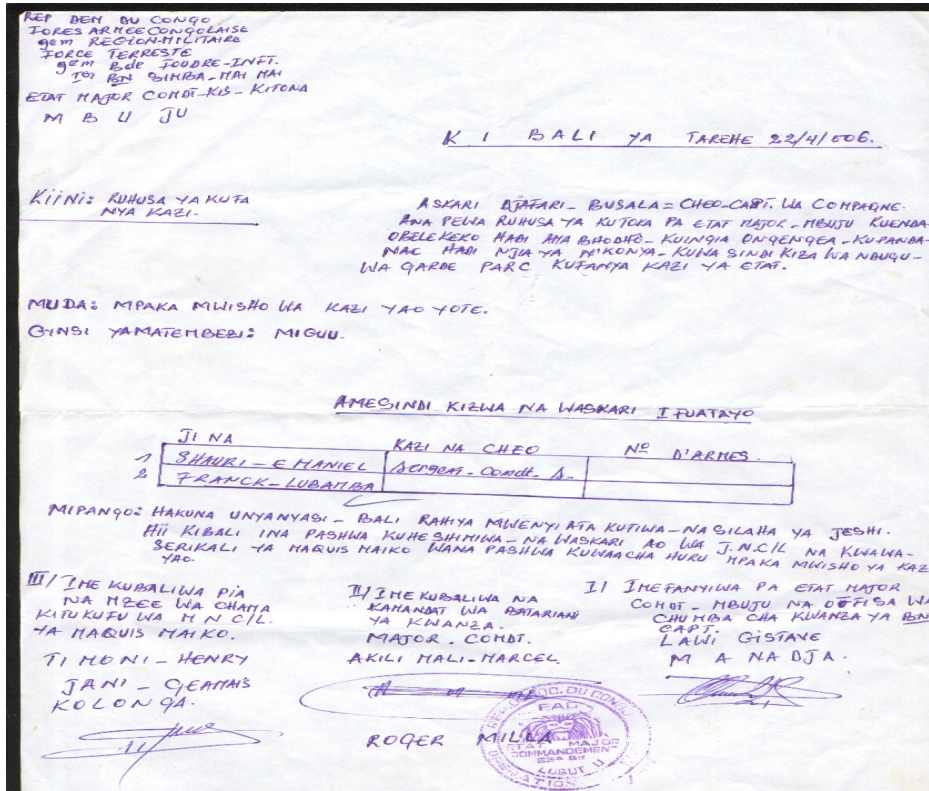 REP DEM DU CONGO
FORES ARMEE CONGOLAISE
9em REGION-MILITAIRE
FORCE TERRESTE
9em Bde FOUDRE-INFT.
1er BN SIMBA-MAI MAI
ETAT MAJOR COMDT-KIS-KITONA
M B U JU
K I BALI YA TAREHE 22/4/006.
KIINI: RUHUSA YA KUFA
NYA KAZI.
ASKARI DJAFARI-BUSALA = CHEO-CAPT. WA COMPAGNE.
ANA PEWA RUHUSA YA KUTOKA PA ETAT MAJOR-MBUJU KUENDA-
OBELEKEKO HADI AMA BHODHO-KUINGIA ONGENGEA-KUPANDA-
NAC HADI NJIA YA N'KONYA-KUWA SINDI KIZA WA NDUGU-
WA GARDE PARC KUFANYA KAZI YA ETAT.
MUDA: MPAKA MWISHO WA KAZI YAO YOTE.
GINSI YAMATEMBEZI: MIGUU.
AMESINDI KIZWA NA WASKARI IFUATAYO
JI NA KAZI NA CHEO No D'ARMES.
1 SHAURI-EMANIEL Sergeat-Comdt-S.
2 FRANCK-LUBAMBA
MIPANGO: HAKUNA UNYANYASI-BALI RAHIYA MWENYI ATA KUTIWA-NA SILAHA YA JESHI.
HII KIBALI INA PASHWA KUHESHIMIWA-NA WASKARI AO WA J.N.C/L NA KWAWA-
SERIKALI YA MAQUIS MAIKO WANA PASHWA KUWAACHA HURU MPAKA MWISHO YA KAZI
YAO.
III/ IME KUBALIWA PIA
NA MZEE WA CHAMA
KITUKUFU WA M N C/L.
YA MAQUIS MAIKO.
TI MONI-HENRY
JANI-GEAMAIS
KOLONGA.
II/ IME KUBALIWA NA
KAMANDAT WA BATARIANI
YA KWANZA.
MAJOR. COMDT.
AKILI MALI-MARCEL.
ROGER MILLA
I/ IMEFANYIWA PA ETAT MAJOR
COMDT-MBUJU NA OFFISA WA
CHUMBA CHA KWANZA YA BN
CAPT.
LAWI GISTAVE
M A NA DJA.
DU CONGO
ETAT MAJOR
COMMANDEMENT
LUBUTU
OPERATION